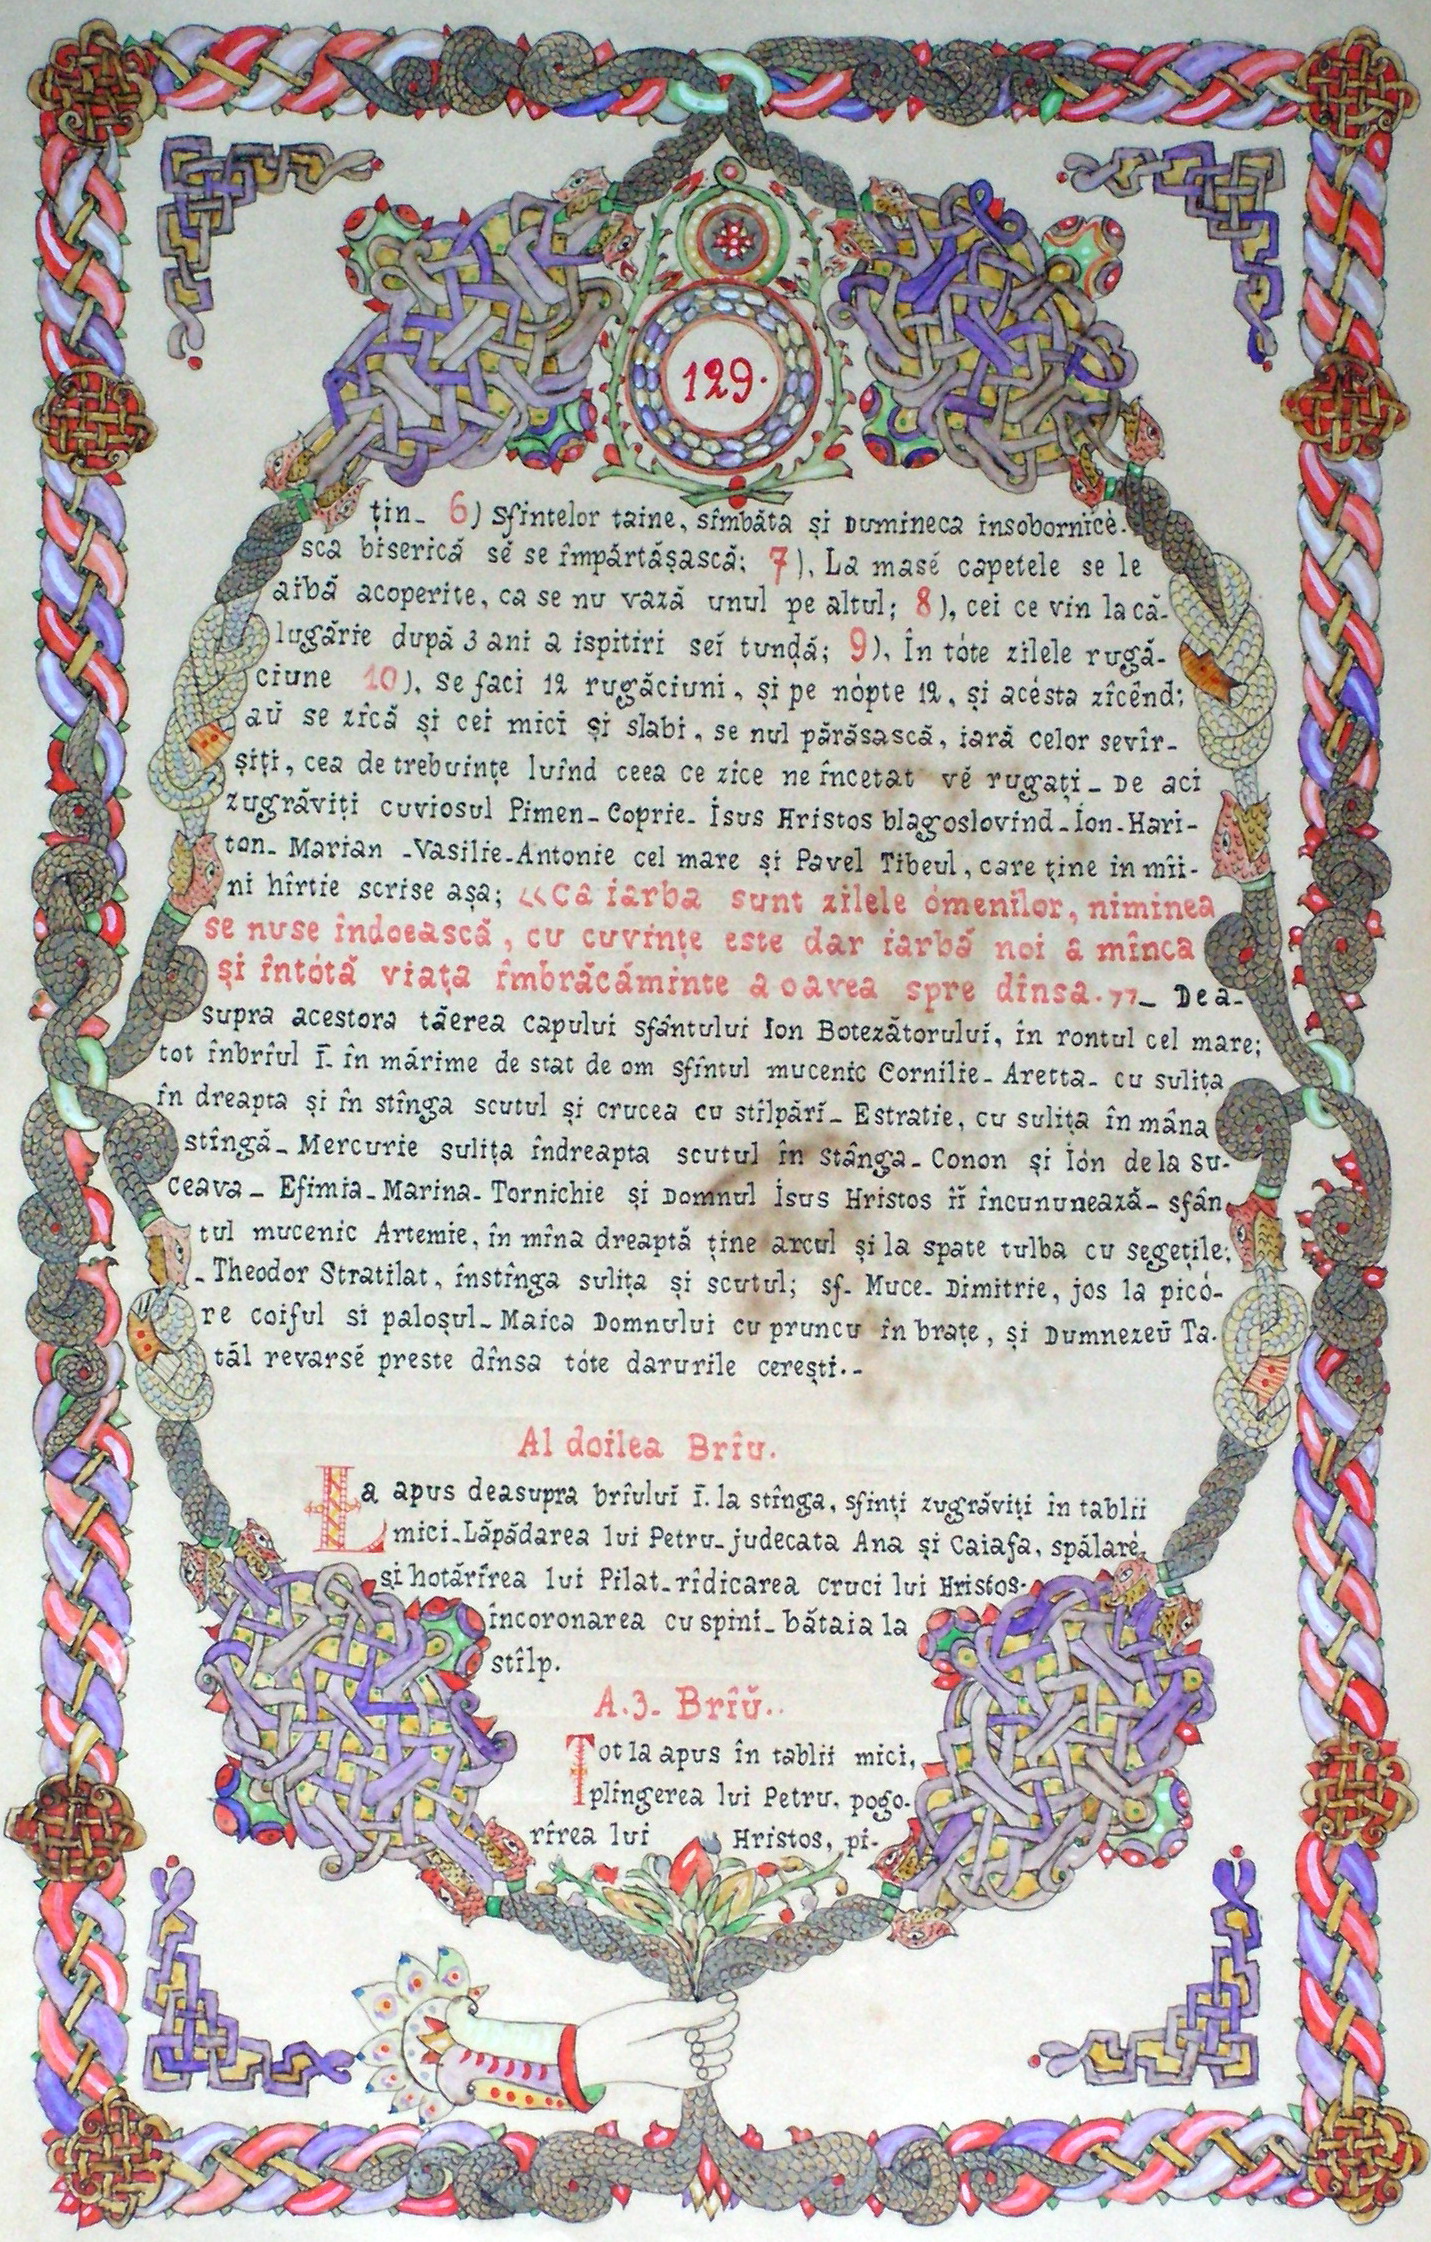 129.
țin_ 6) sfintelor taine, sîmbăta și Dumineca însobornicè-
sca biserică sĕ se împărtășască; 7), La masé capetele se le
aibă acoperite, ca se nu vază unul pe altul; 8), cei ce vin la că-
lugărie după 3 ani a ispitiri seĭ tundă; 9), În tóte zilele rugă-
ciune 10), se faci 12 rugăciuni, și pe nópte 12, și acésta zîcênd;
aŭ se zîcă și cei mici și slabi, se nul părăsască, iară celor sevîr-
șiți, cea de trebuințe luînd ceea ce zice ne încetat vĕ rugați_ De aci
zugrăviți cuviosul Pimen_ Coprie_ Isus Hristos blagoslovind_Ion-Hari-
ton_ Marian _Vasilie_Antonie cel mare și Pavel Tibeul, care ține în mîi-
ni hîrtie scrise așa; «Ca iarba sunt zilele ómenilor, niminea
se nuse îndoească, cu cuvințe este dar iarbă noi a mînca
și întótă viața îmbrăcăminte a o avea spre dînsa.„_ Dea-
supra acestora tăerea capului sfântului Ion Botezătorului, în rontul cel mare;
tot înbrîul Ī. în mărime de stat de om sfîntul mucenic Cornilie_ Aretta_ cu sulița
în dreapta și în stînga scutul și crucea cu stîlpări_ Estratie, cu sulița în mâna
stîngă_ Mercurie sulița îndreapta scutul în stânga_ Conon și Ión de la Su-
ceava_ Efimia_Marina_ Tornichie și Domnul Isus Hristos îĭ încununează_ sfân
tul mucenic Artemie, în mîna dreaptă ține arcul și la spate tulba cu segețile;
_ Theodor Stratilat, înstînga sulița și scutul; sf_ Muce_ Dimitrie, jos la picó-
re coiful si paloșul_ Maica Domnului cu pruncu în brațe, și Dumnezeŭ Ta-
tăl revarsĕ preste dînsa tóte darurile cerești._
Al doilea Brîu.
La apus deasupra brîuluĭ Ī. la stînga, sfinți zugrăviți în tablii
mici_Lăpădarea lui Petru_judecata Ana și Caiafa, spălare,
și hotărîrea lui Pilat_ridicarea cruci lui Hristos-
încoronarea cu spini_ bătaia la
stîlp.
A.3_ Brîŭ..
Tot la apus în tablii mici,
plîngerea lui Petru, pogo-
rîrea lui Hristos, pi-